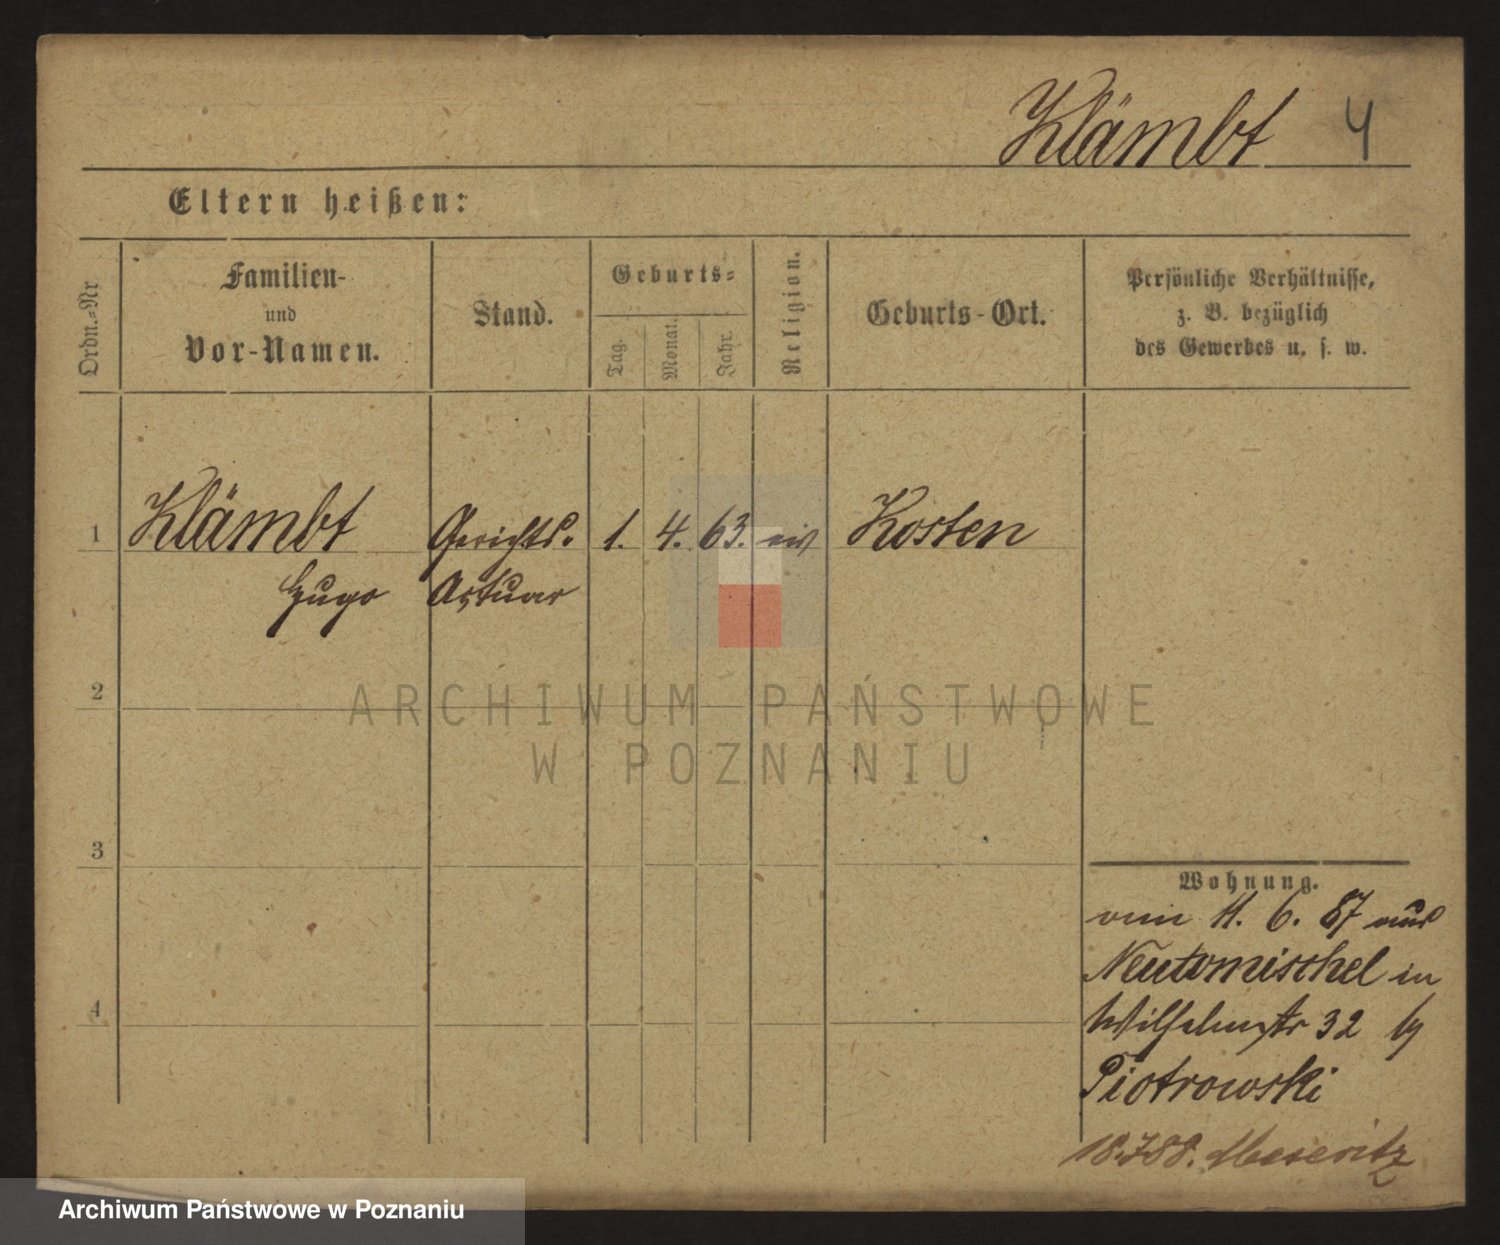 Klämbt 4
Eltern heißen:
Ordn.-Nr
Familien-
und
Vor-Namen.
Stand.
Geburts-
Tag.
Monat.
Jahr.
Religion.
Geburts-Ort.
Persönliche Verhältnisse,
z. B. bezüglich
des Gewerbes u. s. w.
1 Klämbt Gerichts- 1. 4. 63. Kosten
Hugo Actuar
2
3
4
Wohnung.
11. 6. 87 aus
Neutomischel in
Wilhelmstr 32 by
Piotrowski
18.7 88. Meseritz
ARCHIWUM PAŃSTWOWE
W POZNANIU
Archiwum Państwowe w Poznaniu